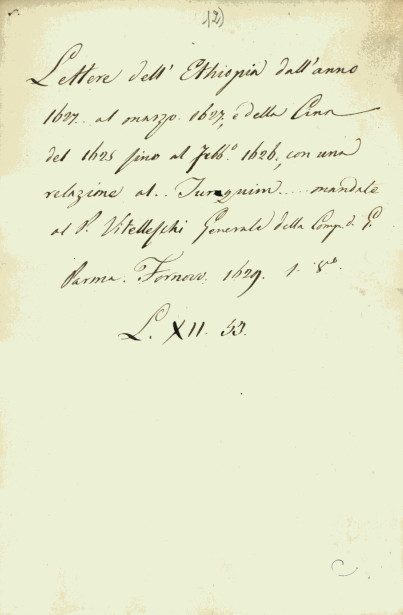 (2)
Lettere dell' Ethiopia dall'anno
1627.. al marzo. 1627, e della Cina
del 1625 fino al Febb.o 1626, con una
relazione al... Tunquim.... mandate
al P. Vitelleschi Generale della Comp. d. G.
Parma. Fornovo. 1629. 1. 8.o
L. XII. 53.